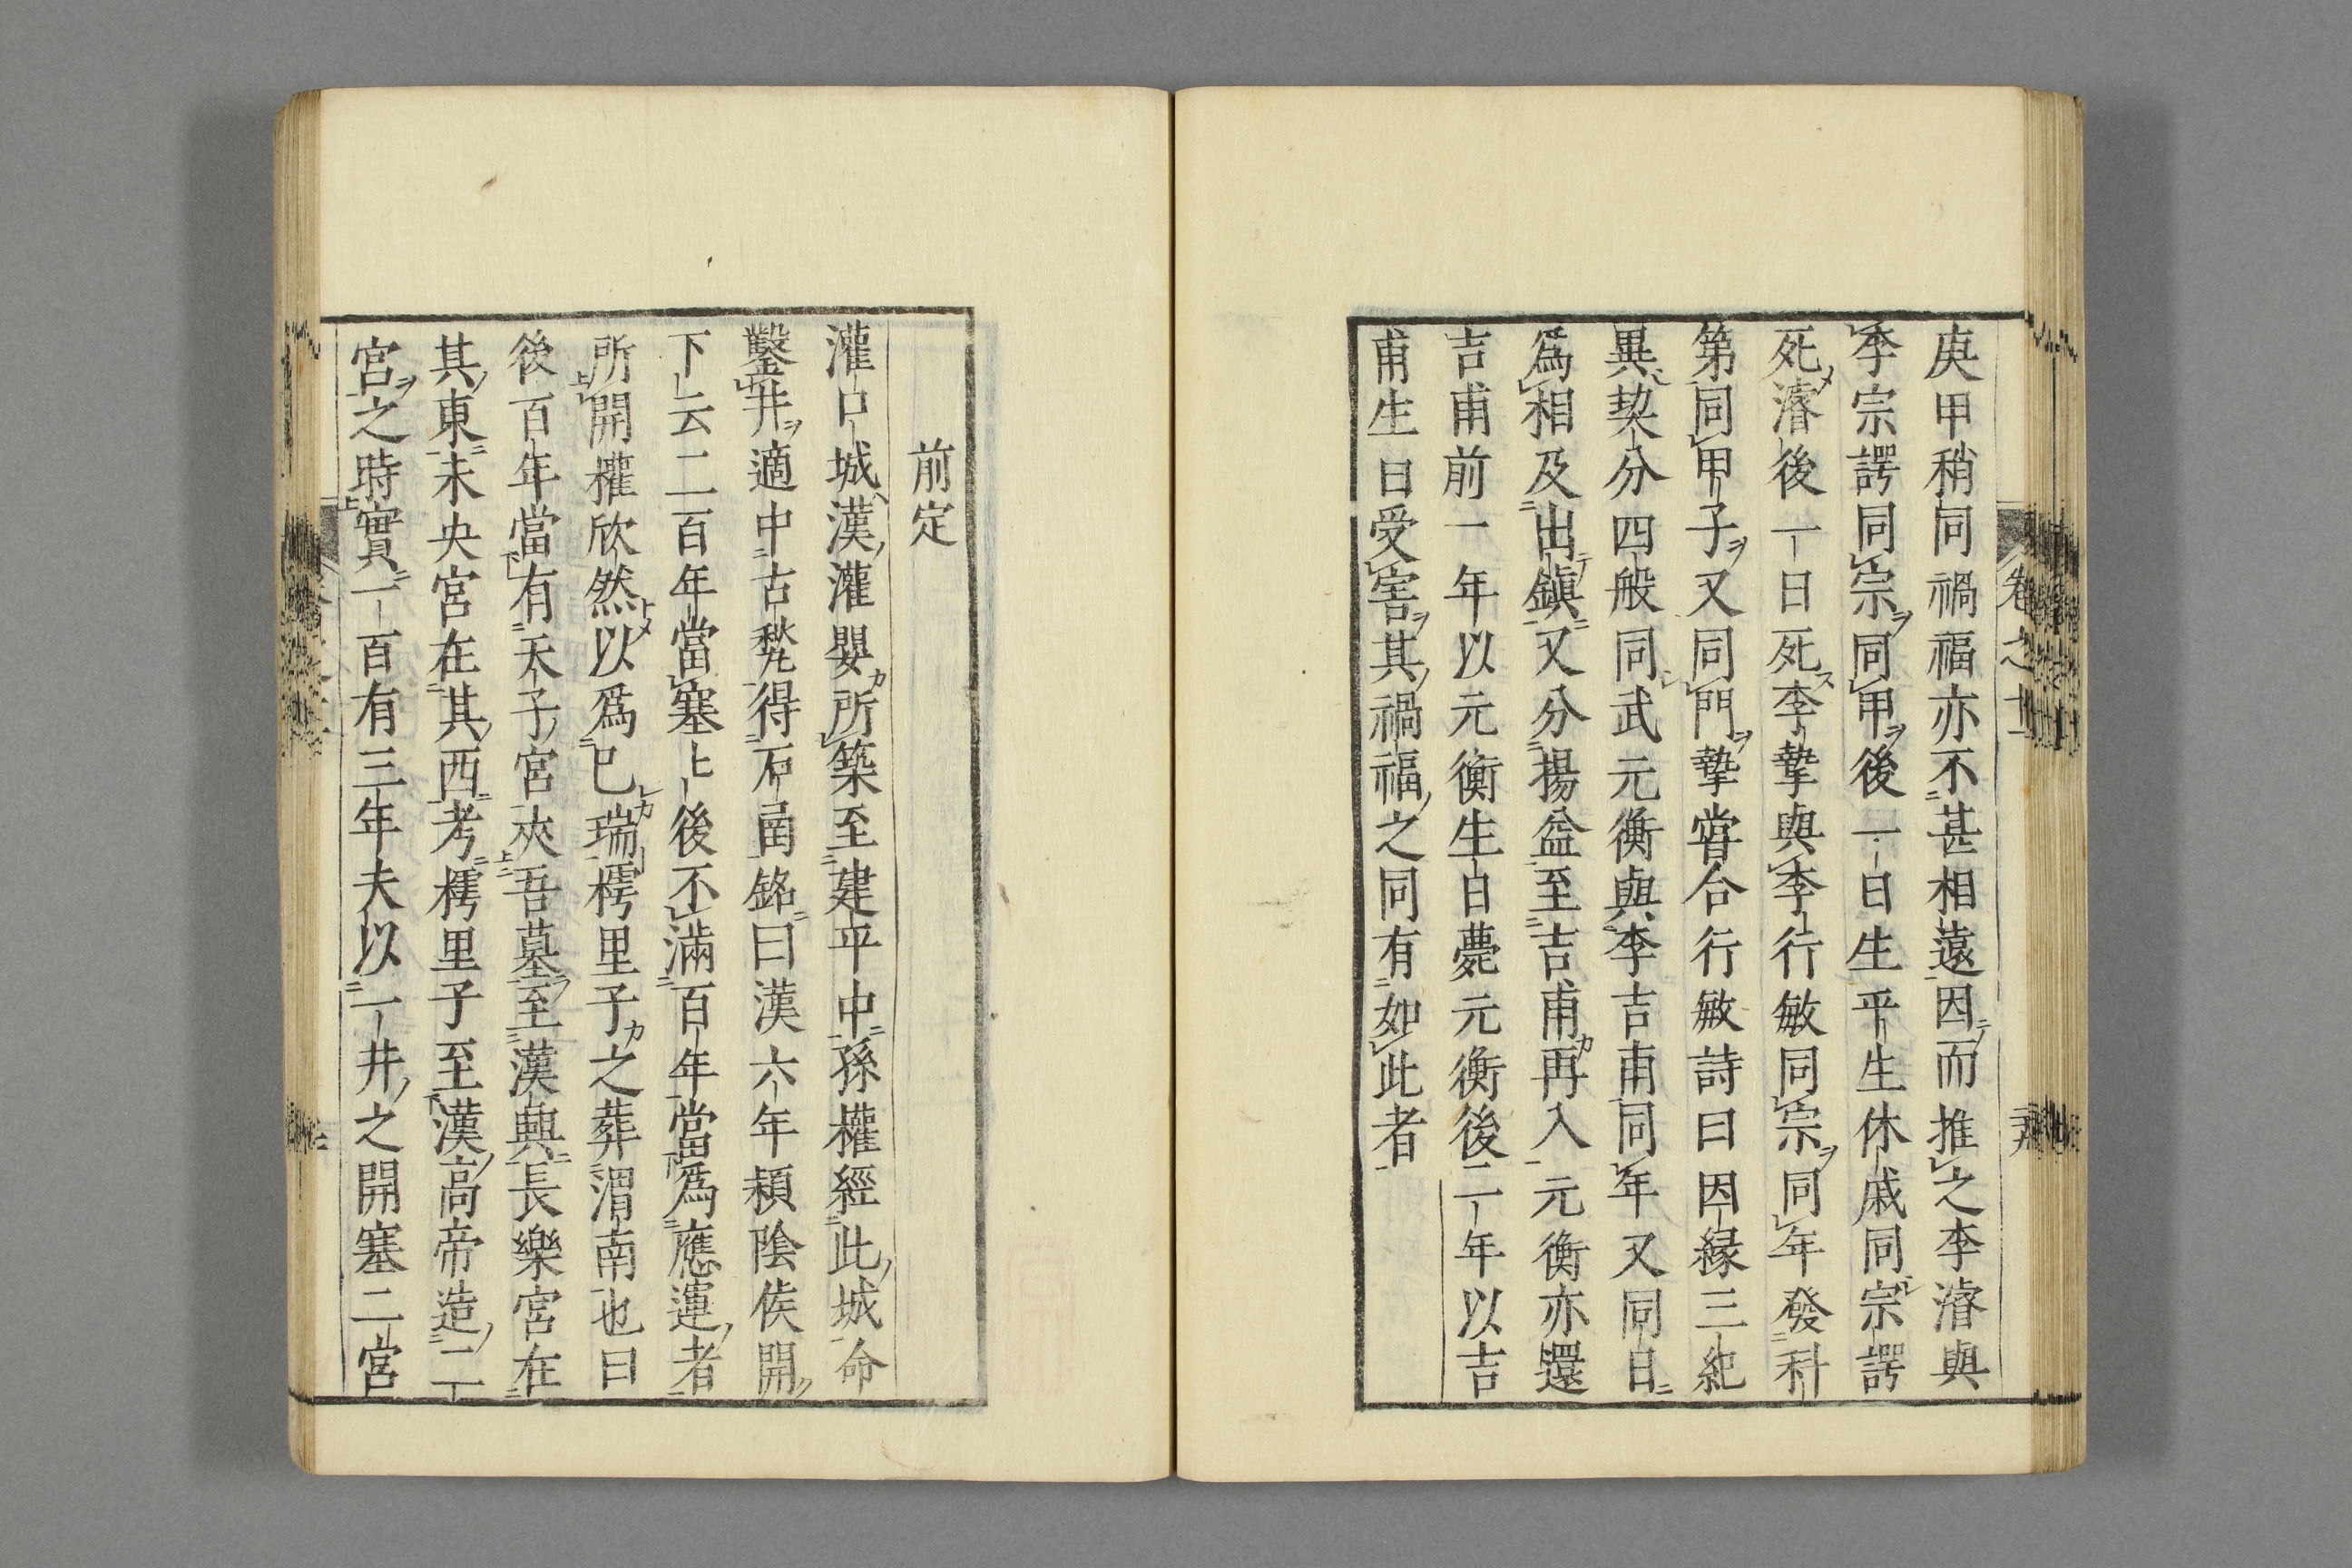 庚甲稍同禍福亦不甚相遠因而推之李濬與
李宗諤同宗同甲後一日生平生休戚同宗諤
死濬後一日死李摯與李行敏同宗同年發科
第同甲子又同門摯嘗合行敏詩曰因縁三紀
異契分四般同武元衡與李吉甫同年又同日
爲相及出鎮又分揚益至吉甫再入元衡亦還
吉甫前一年以元衡生日薨元衡後二年以吉
甫生日受害其禍福之同有如此者
前定
灌口城漢灌嬰所築至建平中孫權經此城命
鑿井適中古甃得石凾銘曰漢六年頴陰侯開
下云二百年當塞上後不滿百年當爲應運者
所開權欣然以爲已瑞樗里子之葬渭南也曰
後百年當有天子宮夾吾墓至漢興長樂宮在
其東未央宮在其西考樗里子至漢高帝造二
宮之時實一百有三年夫以一井之開塞二宮